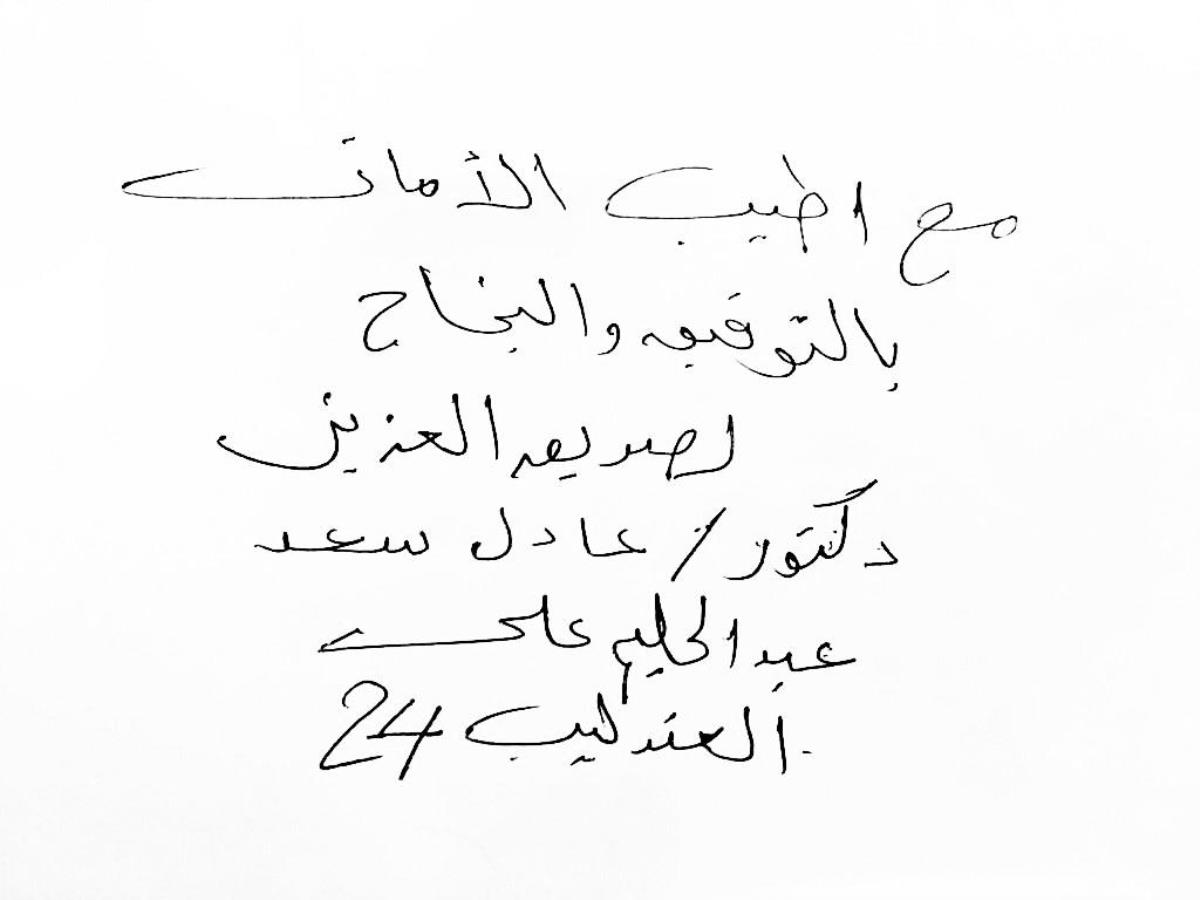 مع اطيب الأماني
بالتوفيق والنجاح
لصديق العزيز
دكتور / عادل سعد
عبد الحليم على
العندليب 24